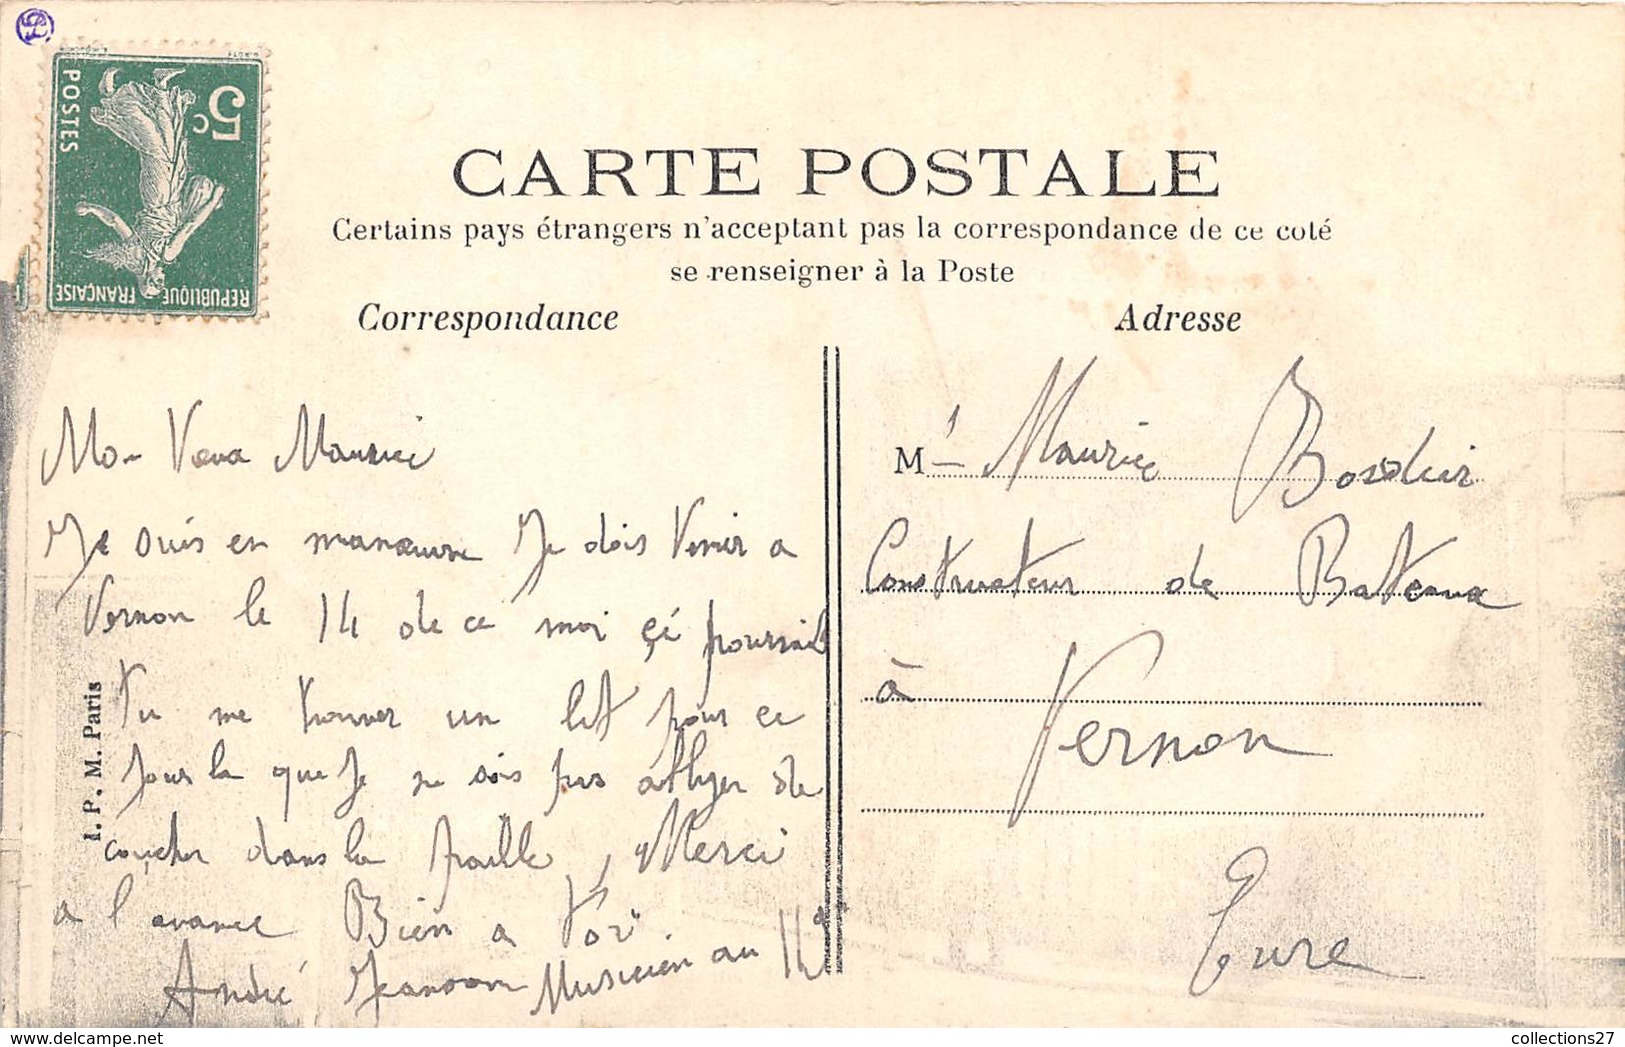 5c
POSTES
REPUBLIQUE FRANÇAISE
CARTE POSTALE
Certains pays étrangers n'acceptant pas la correspondance de ce coté
se renseigner à la Poste
Correspondance
Mon Veux Maurice
Je suis en manœuvre Je dois Venir a
Vernon le 14 de ce moi çé pourrait
Tu me trouver un lit pour ce
Jour la que Je ne sois pas obliger de
coucher dans la paille, Merci
a l'avance Bien a Toi
André Jeanson Musicien au
I. P. M. Paris
Adresse
Mr Maurice
Constructeur de Bateaux
à Vernon
Eure
collections27